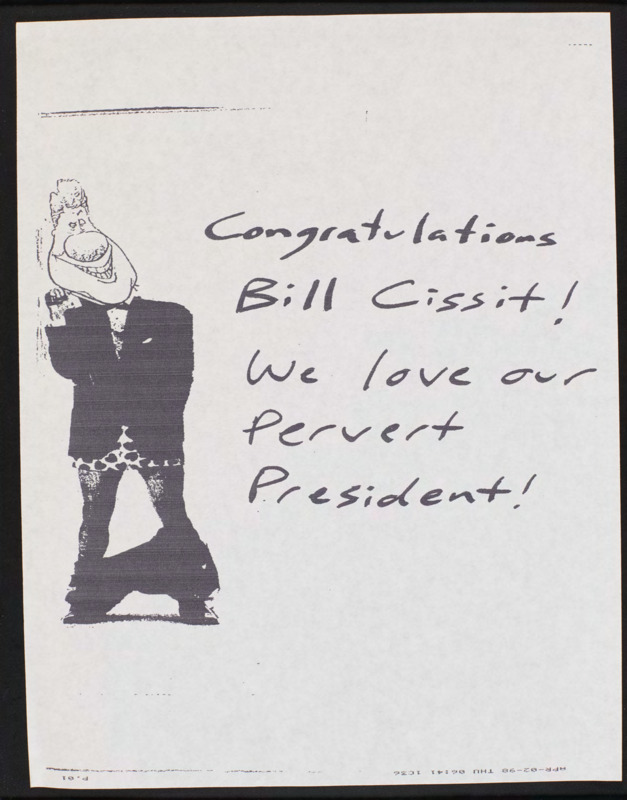 Congratulations
Bill Cissit!
We love our
Pervert
President!
P.01
APR-02-98 THU 06:41